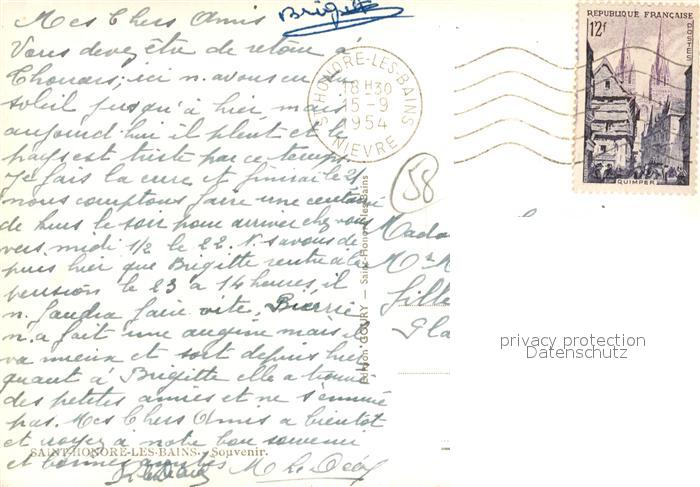 Mes Chers Amis
Brigitte
Vous devez être de retour à
ici n. avons eu du
soleil jusqu'à hier, mais
aujourd'hui il pleut et le
pays est triste par ce temps
Je fais la cure et finirai le 21
nous comptons faire une centaine
de kms le soir pour arriver chez vous
vers midi 1/2 le 22. N. savons de
puis hier que Brigitte rentre à la
pension le 23 à 14 heures, il
n. faudra faire vite, Pierre
n. a fait une angine mais il
va mieux et sort depuis hier
quant à Brigitte elle a trouvé
des petites amies et ne s'ennuie
pas. Mes Chers Amis à bientôt
et croyez à notre bon souvenir
et bonnes amitiés
SAINT-HONORE-LES-BAINS. Souvenir.
ST HONORE-LES-BAINS
18H30
15-9
1954
NIEVRE
58
REPUBLIQUE FRANÇAISE
POSTES
12f
QUIMPER
Edition GOURY — Saint-Honoré-les-Bains
Mada
Gille
privacy protection
Datenschutz